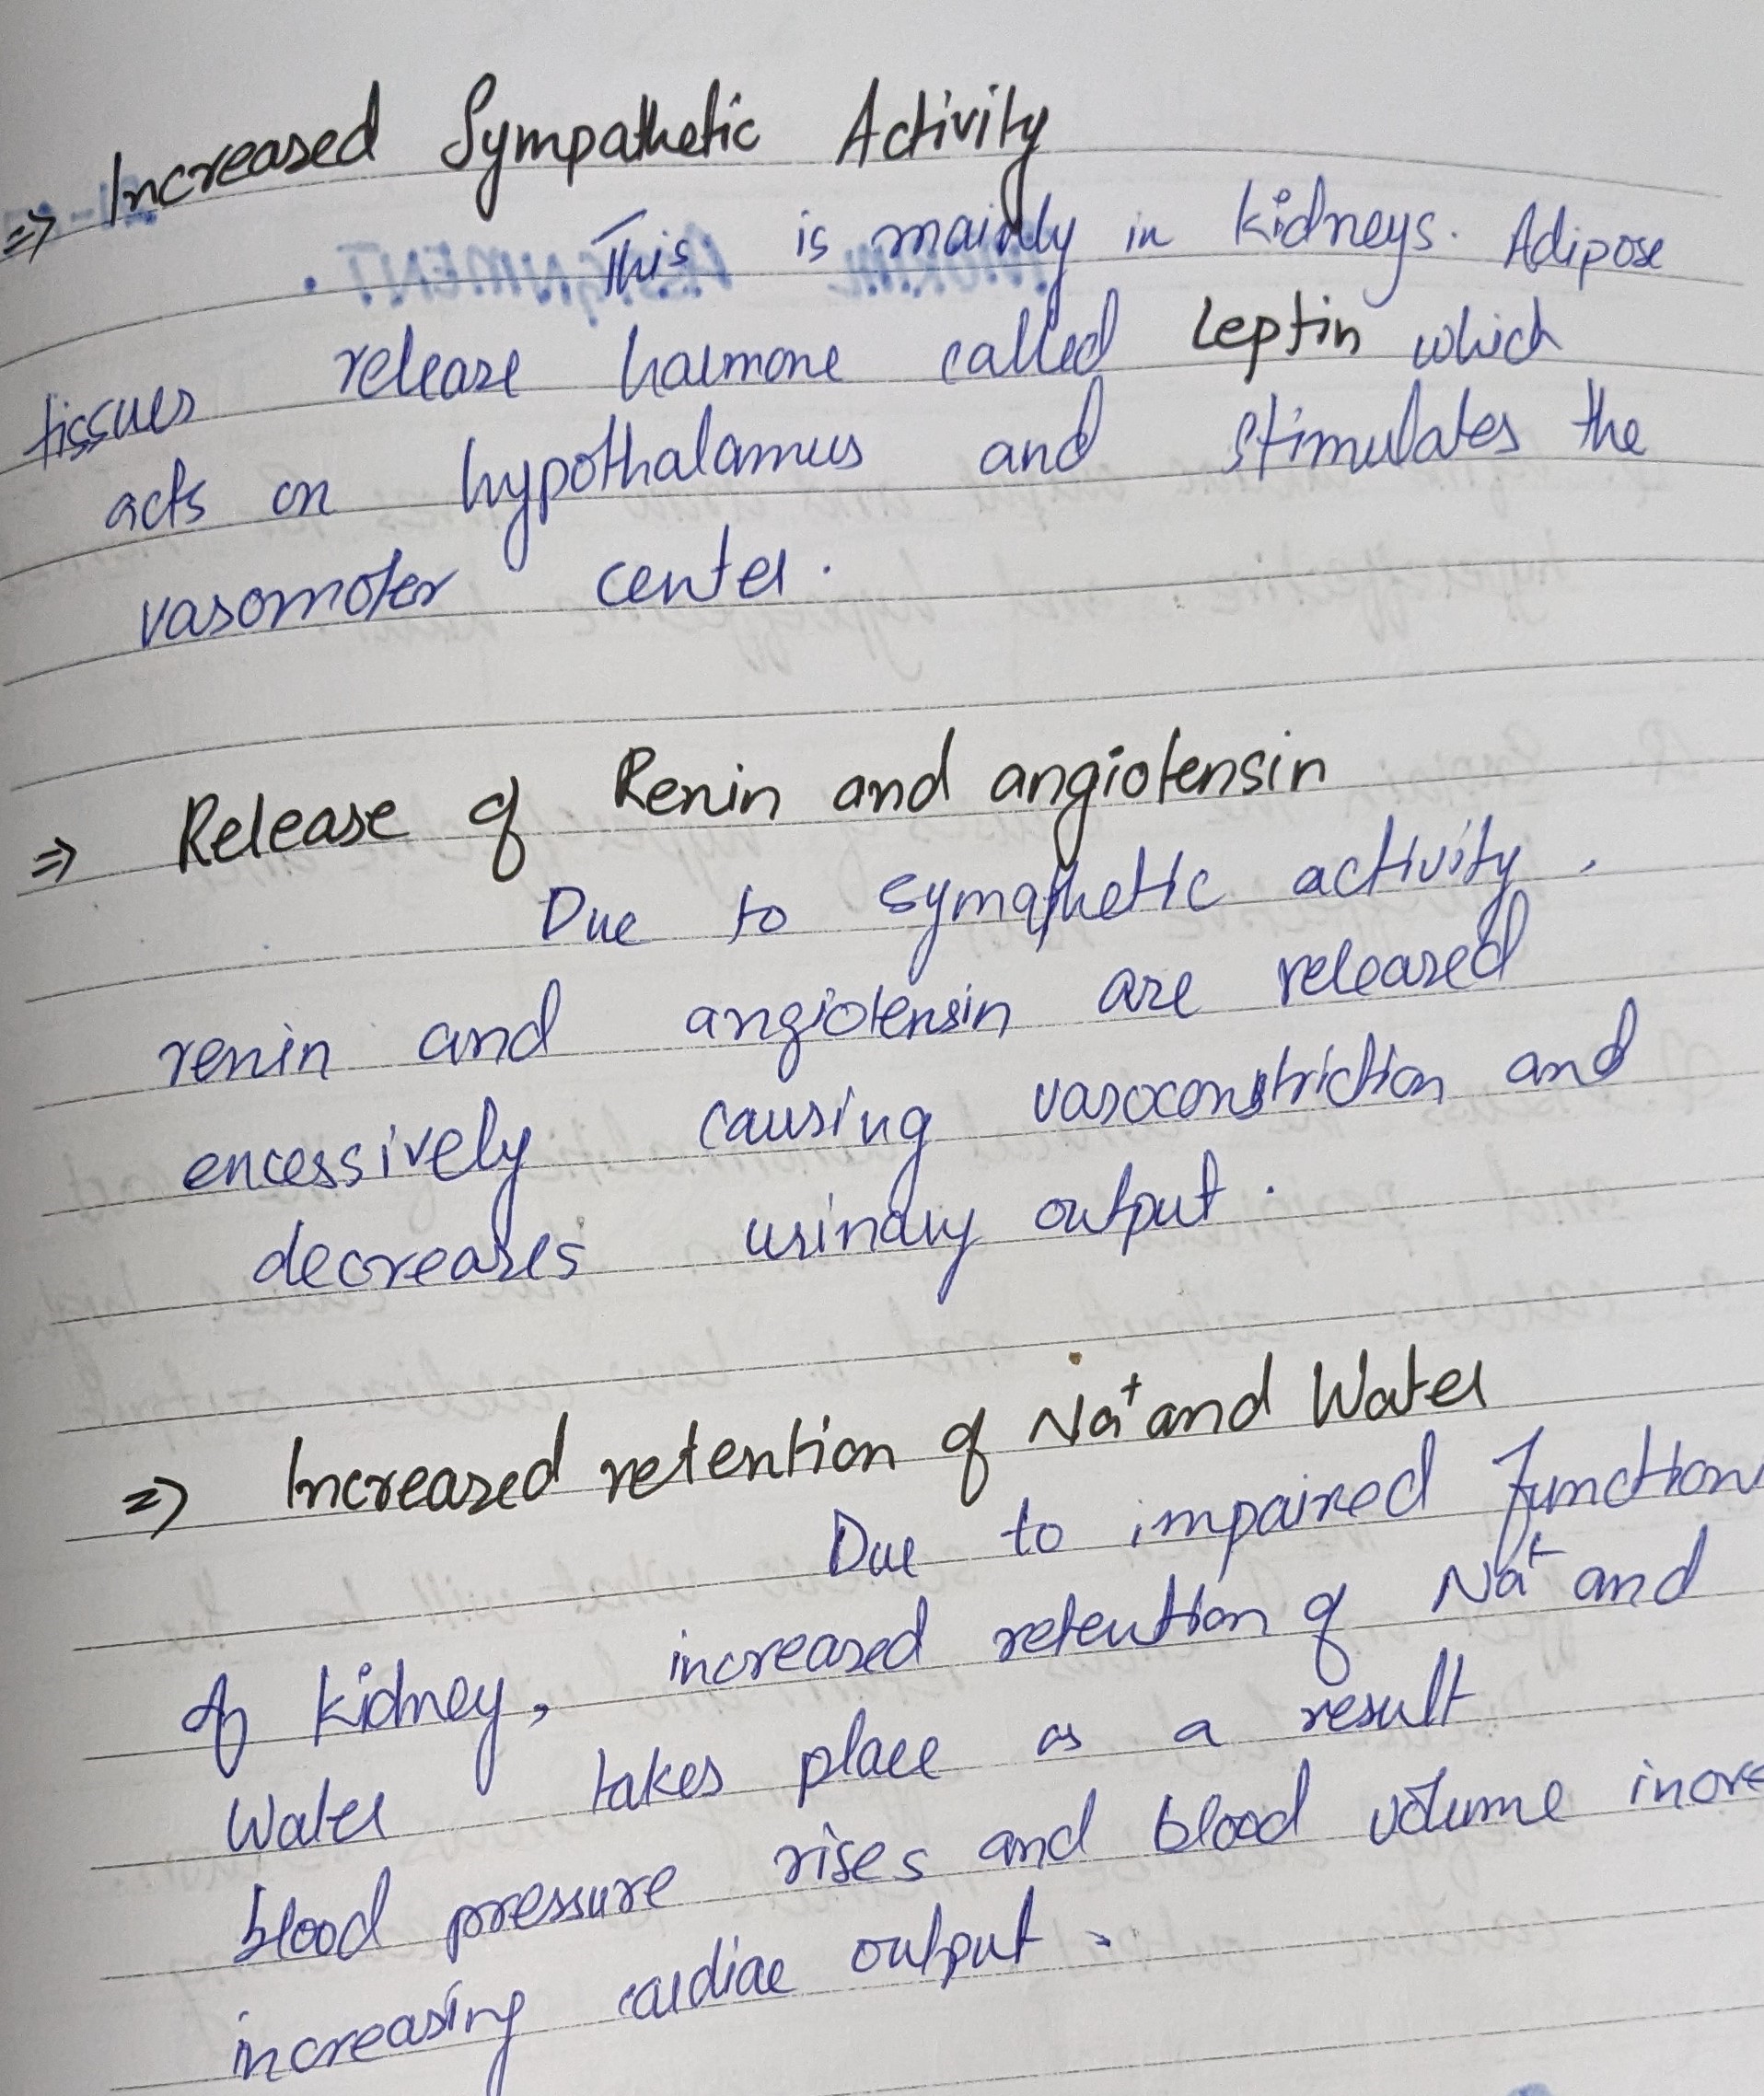 ⇒ Increased Sympathetic Activity
This is mainly in kidneys. Adipose
tissues release halmone called Leptin which
acts on hypothalamus and stimulates the
vasomoter center.
⇒ Release of Renin and angiotensin
Due to symapthetic activity,
renin and angiotensin are released
encessively causing vasoconstriction and
decreases urinary output.
⇒ Increased retention of Na⁺ and Water
Due to impaired function
of kidney, increased retention of Na⁺ and
Water takes place as a result
blood pressure rises and blood volume incre
increasing cardiac output.